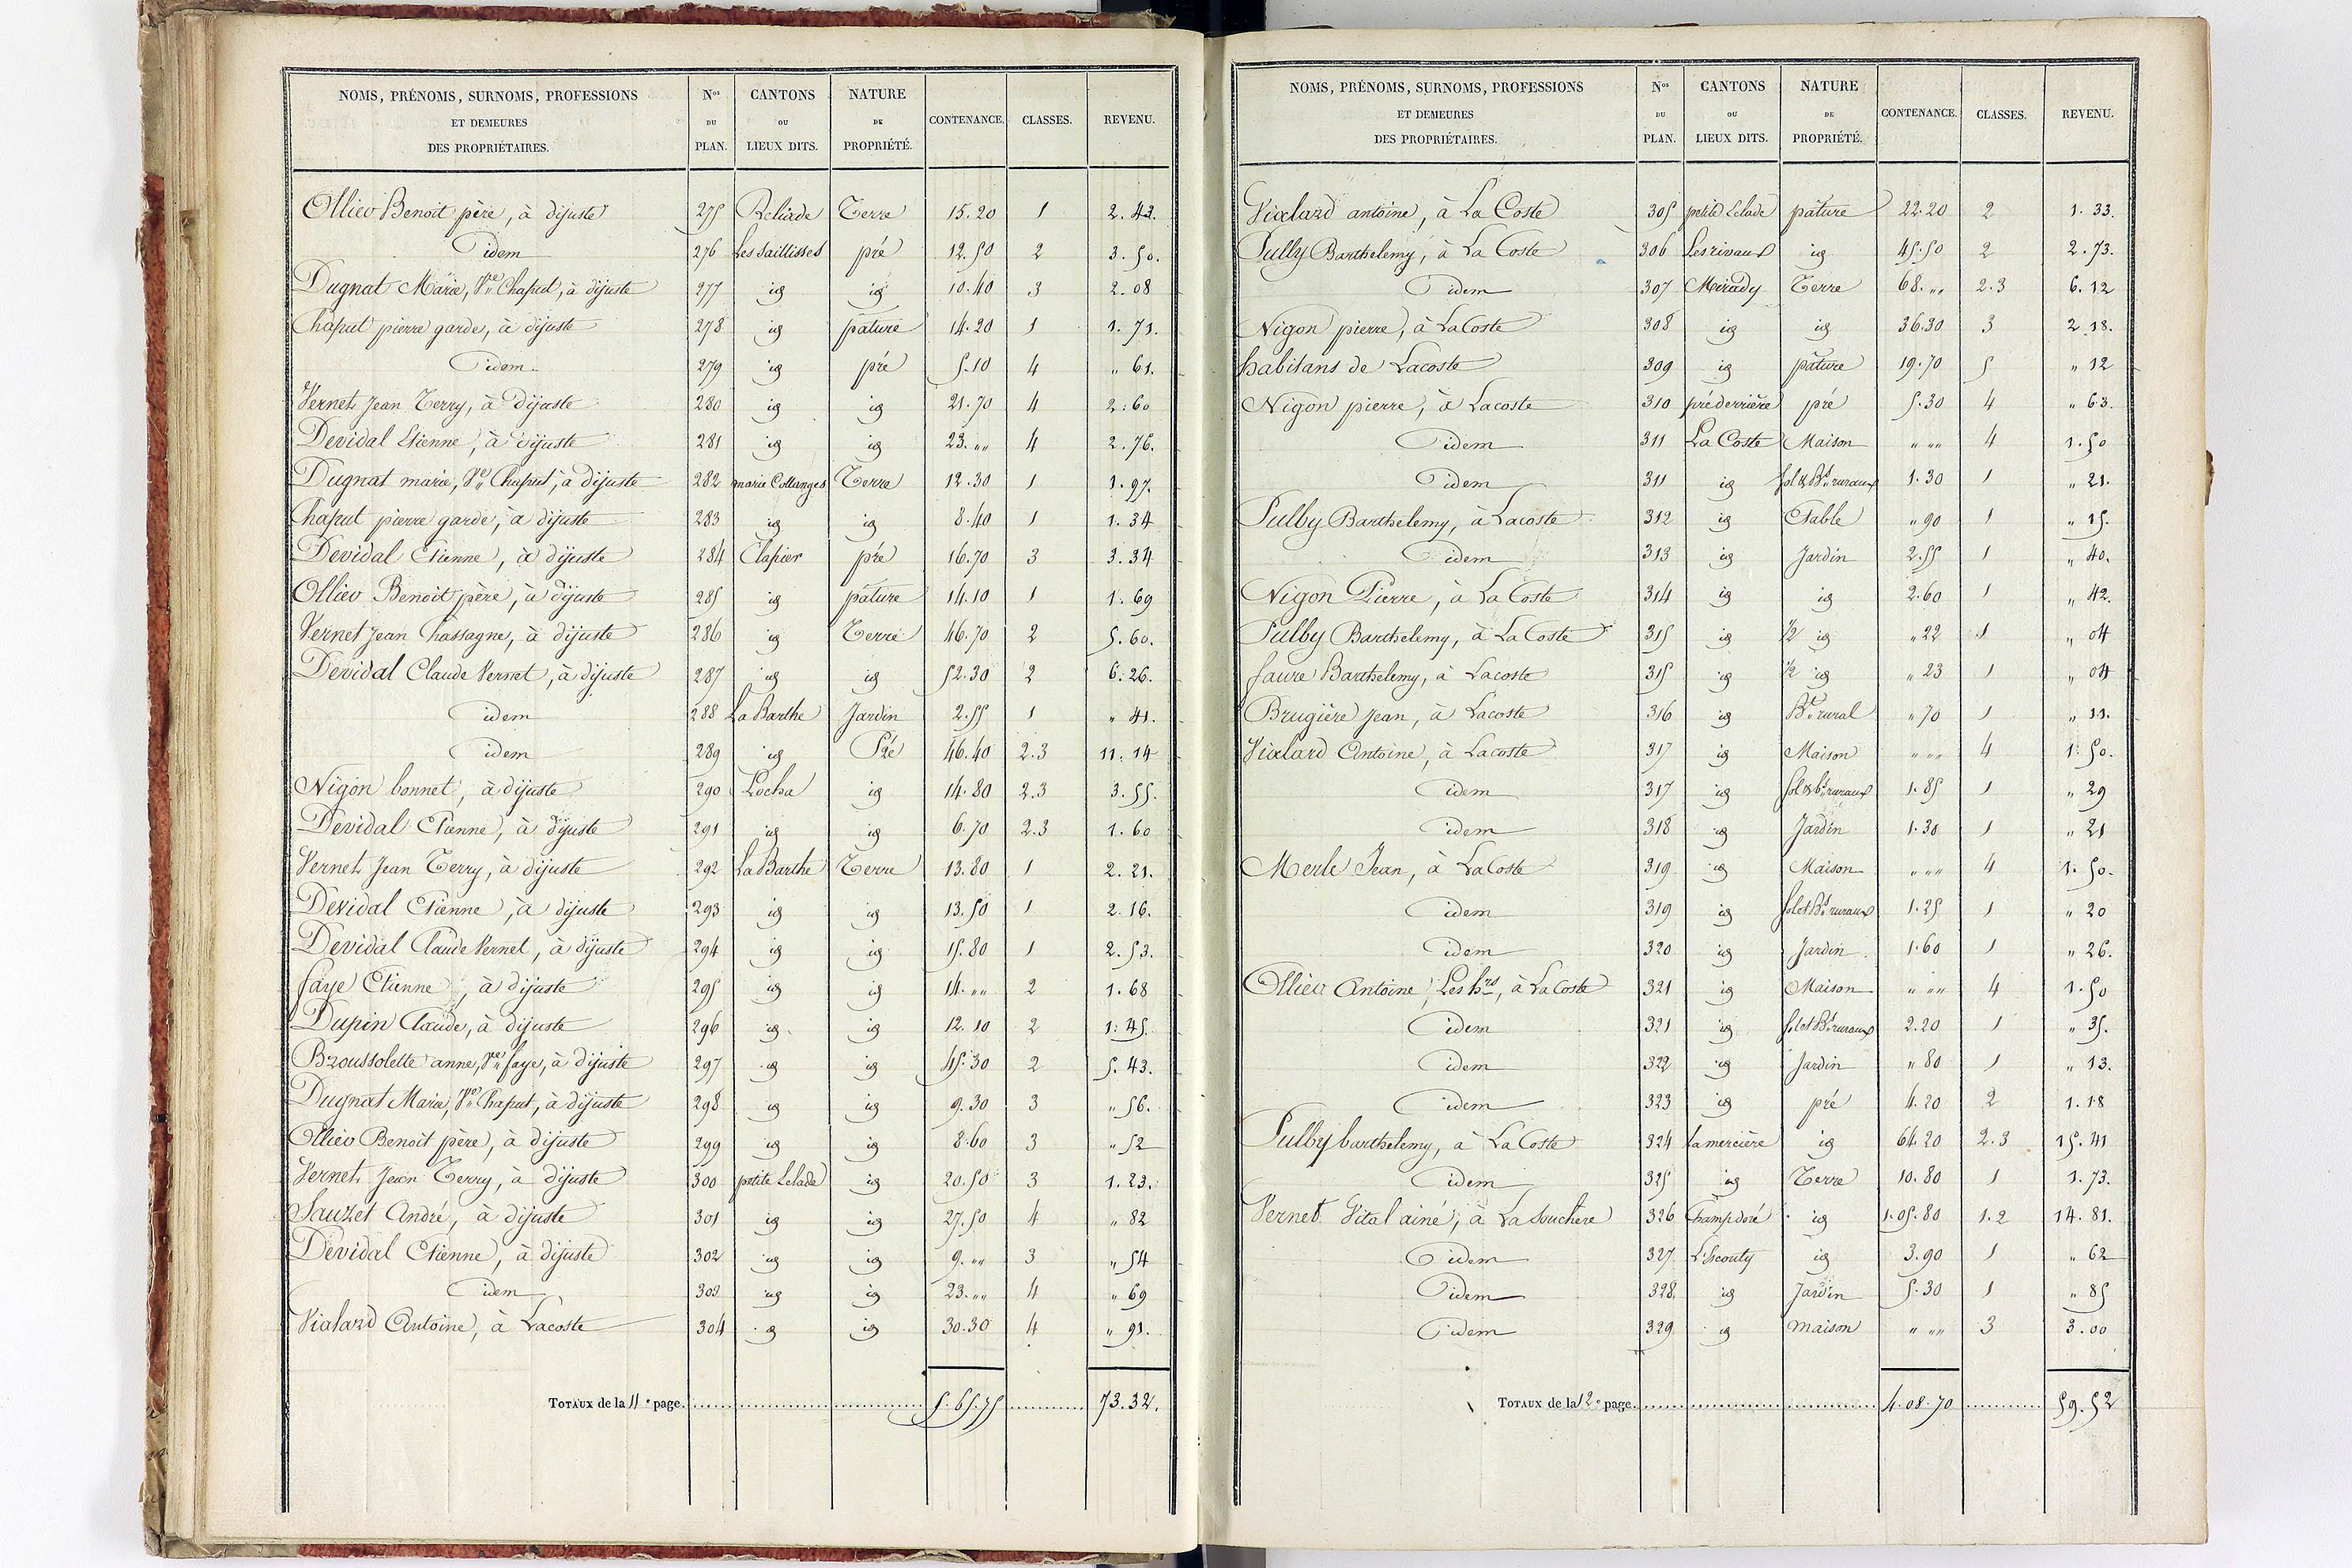 NOMS, PRÉNOMS, SURNOMS, PROFESSIONS ET DEMEURES DES PROPRIÉTAIRES. Nos DU PLAN. CANTONS OU LIEUX DITS. NATURE DE PROPRIÉTÉ. CONTENANCE. CLASSES. REVENU.
Ollier Benoit père, à dijuste 275 Reliade Terre 15.20 1 2.43.
idem 276 Les saillisses pré 12.50 2 3.50.
Dugnat Marie, Ve Chaput, à dijuste 277 id id 10.40 3 2.08
Chaput pierre garde, à dijuste 278 id pâture 14.20 1 1.71.
idem 279 id pré 5.10 4 " 61.
Vernet Jean Terry, à dijuste 280 id id 21.70 4 2.60
Devidal Etienne, à dijuste 281 id id 23. " 4 2.76.
Dugnat marie, Ve Chaput, à dijuste 282 marie Collanges Terre 12.30 1 1.97.
Chaput pierre garde, à dijuste 283 id id 8.40 1 1.34
Devidal Etienne, à dijuste 284 Clapier pré 16.70 3 3.34
Ollier Benoit père, à dijuste 285 id pâture 14.10 1 1.69
Vernet Jean Chassagne, à dijuste 286 id Terre 46.70 2 5.60.
Devidal Claude Vernet, à dijuste 287 id id 52.30 2 6.26.
idem 288 La Barthe Jardin 2.55 1 " 41.
idem 289 id Pré 46.40 2.3 11.14
Nigon bonnet, à dijuste 290 Locha id 14.80 2.3 3.55.
Devidal Etienne, à dijuste 291 id id 6.70 2.3 1.60
Vernet Jean Terry, à dijuste 292 La Barthe Terre 13.80 1 2.21.
Devidal Etienne, à dijuste 293 id id 13.50 1 2.16.
Devidal Claude Vernet, à dijuste 294 id id 15.80 1 2.53.
faye Etienne, à dijuste 295 id id 14. " 2 1.68
Dupin Claude, à dijuste 296 id id 12.10 2 1.45.
Broussolette anne, Ve faye, à dijuste 297 id id 45.30 2 5.43.
Dugnat Marie, Ve Chaput, à dijuste 298 id id 9.30 3 " 56.
Ollier Benoit père, à dijuste 299 id id 8.60 3 " 52
Vernet Jean Terry, à dijuste 300 petite Lelade id 20.50 3 1.23.
Sauzet André, à dijuste 301 id id 27.50 4 " 82
Devidal Etienne, à dijuste 302 id id 9. " 3 " 54
idem 303 id id 23. " 4 " 69
Vialard Antoine, à Lacoste 304 id id 30.30 4 " 91.
TOTAUX de la 11e page. 5.65.75 73.32.
NOMS, PRÉNOMS, SURNOMS, PROFESSIONS ET DEMEURES DES PROPRIÉTAIRES. Nos DU PLAN. CANTONS OU LIEUX DITS. NATURE DE PROPRIÉTÉ. CONTENANCE. CLASSES. REVENU.
Vialard antoine, à La Coste 305 petite Lelade pâture 22.20 2 1.33.
Pulby Barthelemy, à La Coste 306 Les rivaux id 45.50 2 2.73.
idem 307 Mirady Terre 68. " 2.3 6.12
Nigon pierre, à La Coste 308 id id 36.30 3 2.18.
habitans de Lacoste 309 id pâture 19.70 5 " 12
Nigon pierre, à Lacoste 310 pré derrière pré 5.30 4 " 63.
idem 311 La Coste Maison " " 4 1.50
idem 311 id sol & Bts ruraux 1.30 1 " 21.
Pulby Barthelemy, à Lacoste 312 id Etable " 90 1 " 15.
idem 313 id Jardin 2.55 1 " 40.
Nigon Pierre, à La Coste 314 id id 2.60 1 " 42.
Pulby Barthelemy, à La Coste 315 id ½ id " 22 1 " 04
faure Barthelemy, à Lacoste 315 id ½ id " 23 1 " 04
Brugière Jean, à Lacoste 316 id Bt rural " 70 1 " 11.
Vialard Antoine, à Lacoste 317 id Maison " " 4 1.50.
idem 317 id sol & bts ruraux 1.85 1 " 29
idem 318 id Jardin 1.30 1 " 21
Merle Jean, à La Coste 319 id Maison " " 4 1.50.
idem 319 id sol et Bts ruraux 1.25 1 " 20
idem 320 id Jardin 1.60 1 " 26.
Ollier Antoine, Les hrs, à La Coste 321 id Maison " " 4 1.50
idem 321 id sol et Bts ruraux 2.20 1 " 35.
idem 322 id Jardin " 80 1 " 13.
idem 323 id pré 4.20 2 1.18
Pulby barthelemy, à La Coste 324 Lamercière id 64.20 2.3 15.41
idem 325 id Terre 10.80 1 1.73.
Vernet Vital ainé, à La Souchère 326 Champ doré id 1.05.80 1.2 14.81.
idem 327 L'Escouty id 3.90 1 " 62
idem 328 id Jardin 5.30 1 " 85
idem 329 id maison " " 3 3.00
TOTAUX de la 12e page. 4.08.70 59.52